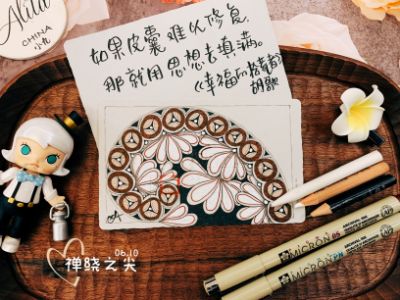 Alita
CHINA
小九
如果皮囊难以修复，
那就用思想去填满。
《幸福的拾荒者》
胡歌
06.10
禅绕之尖
MICRON 05
MICRON PN